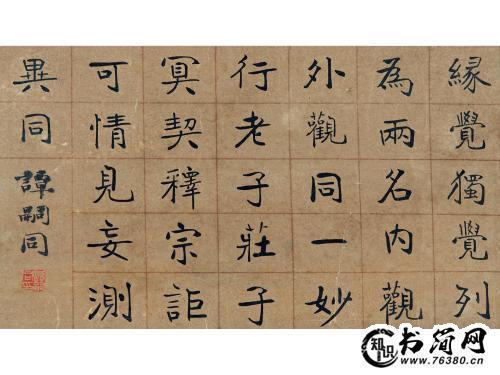 緣覺獨覺列
為兩名內觀
外觀同一妙
行老子莊子
冥契釋宗詎
可情見妄測
異同 譚嗣同
知识
书简网
www.76380.cn